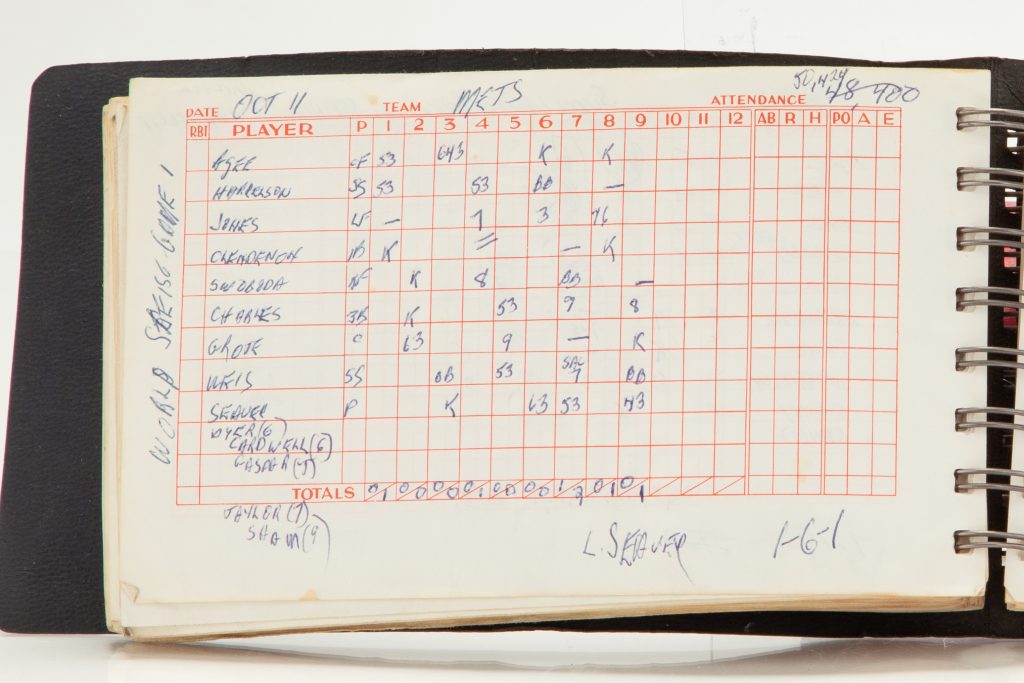 50,429
DATE OCT 11 TEAM METS ATTENDANCE 48,400
RBI PLAYER P 1 2 3 4 5 6 7 8 9 10 11 12 AB R H PO A E
AGEE CF 53 643 K K
HARRELSON SS 53 53 BB —
JONES LF — 7 3
CLENDENON 1B K = — K
SWOBODA RF K 8 BB —
CHARLES 3B K 53 9 8
GROTE C 63 9 — K
WEIS SS BB 53 SAC 7 BB
SEAVER P K 63 53 43
DYER (6)
CARDWELL (6)
GASPAR (7)
TOTALS
TAYLOR (7)
SHAW (9
L. SEAVER 1-6-1
WORLD SERIES GAME 1